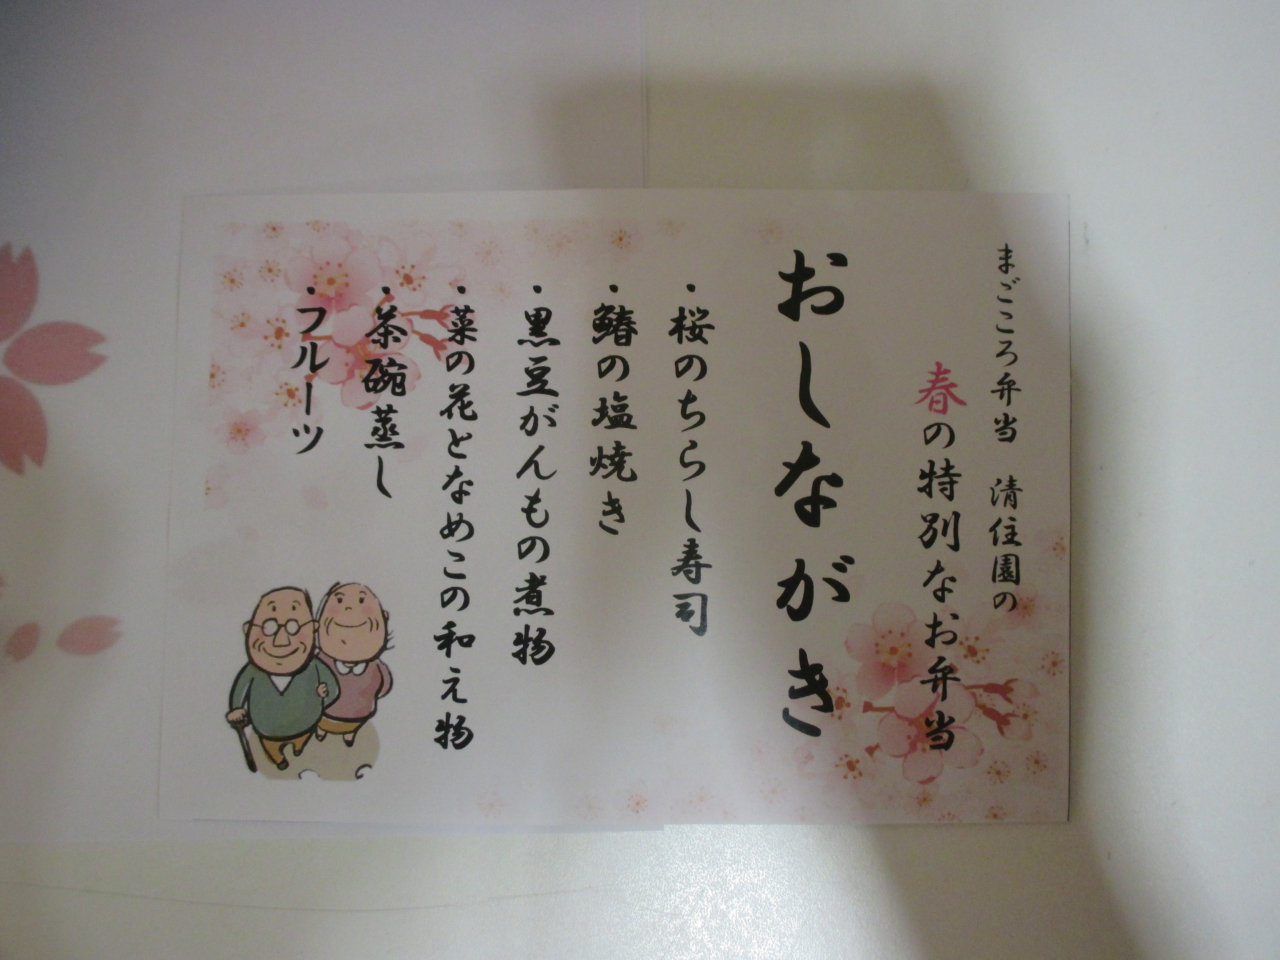 まごころ弁当　清住園の
春の特別なお弁当
おしながき
・桜のちらし寿司
・鰆の塩焼き
・黒豆がんもの煮物
・菜の花となめこの和え物
・茶碗蒸し
・フルーツ